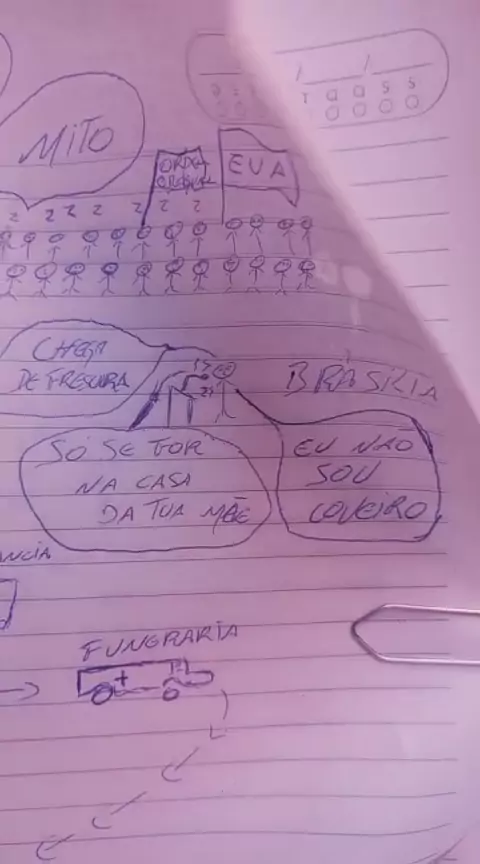 D S T Q Q S S
MITO
EUA
CHEGA
DE FRESCURA
BRASÍLIA
SÓ SE FOR
NA CASA
DA TUA MÃE
EU NÃO
SOU
COVEIRO
NCIA
FUNERARIA